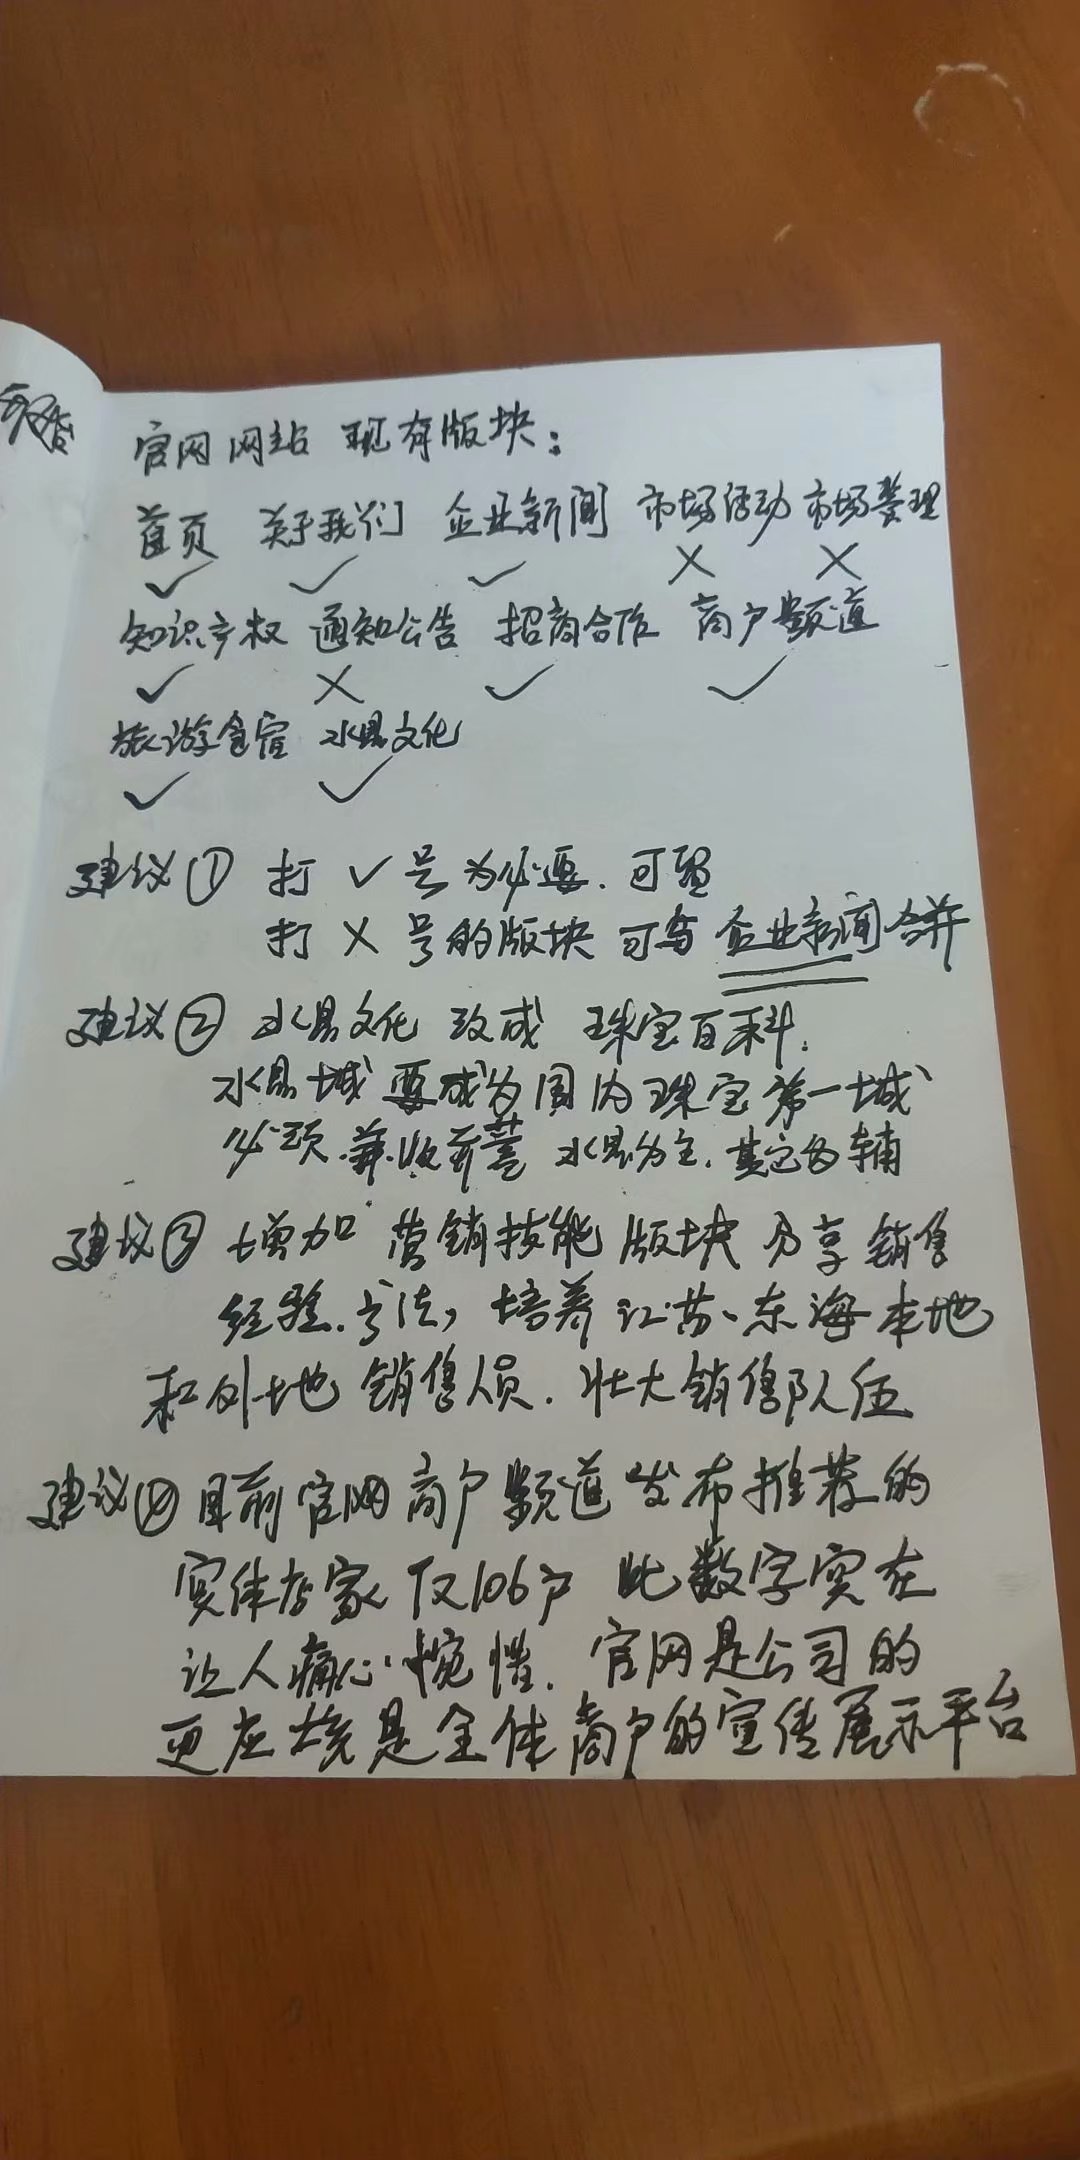 官网网站 现有版块：
首页 关于我们 企业新闻 市场活动 市场管理
✓ ✓ ✓ X X
知识产权 通知公告 招商合作 商户频道
✓ X ✓ ✓
旅游食宿 水晶文化
✓ ✓
建议① 打 ✓ 号为必要.可留
打 X 号的版块 可与 企业新闻合并
建议② 水晶文化 改成 珠宝百科.
水晶城 要成为国内珠宝第一城
必须.兼收并蓄 水晶为主.其它为辅
建议③ 增加 营销技能 版块 分享 销售
经验.方法，培养 江苏、东海本地
和外地 销售人员.壮大销售队伍
建议④ 目前官网商户频道发布推荐的
实体店家 仅106户 此数字实在
让人痛心惋惜.官网是公司的
更应该是全体商户的宣传展示平台